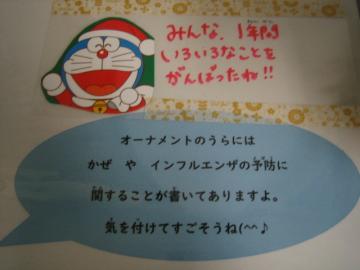 みんな、1年間
いろいろなことを
がんばったね!!
オーナメントのうらには
かぜ や インフルエンザの予防に
関することが書いてありますよ。
気を付けてすごそうね(^^♪